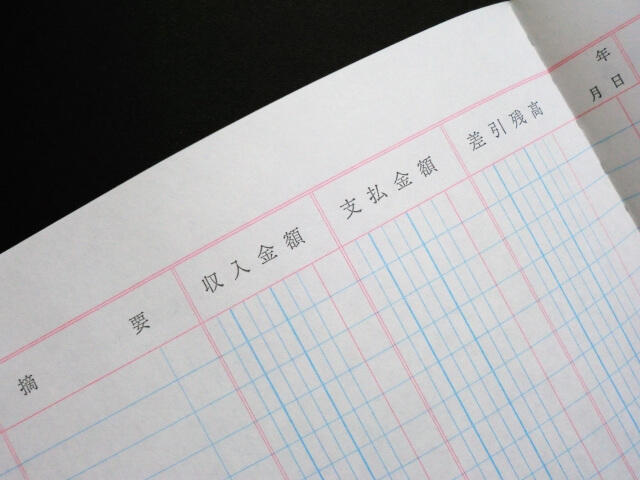 摘要 収入金額 支払金額 差引残高
年
月日